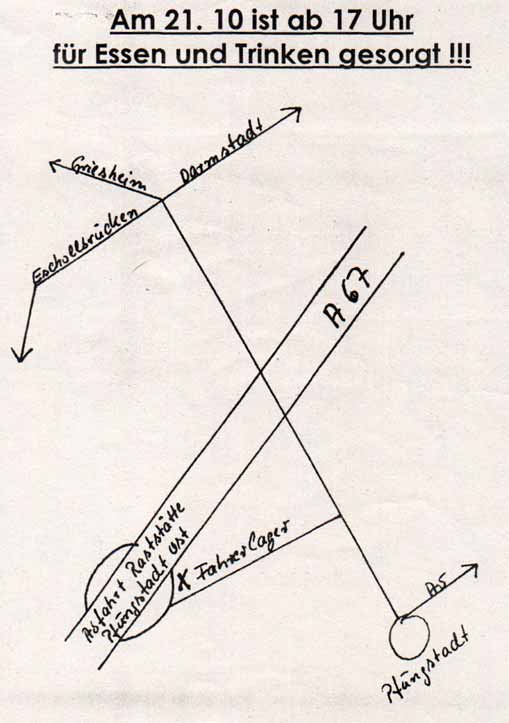 Am 21. 10 ist ab 17 Uhr
für Essen und Trinken gesorgt !!!
Griesheim
Darmstadt
Eschollbrücken
A 67
Abfahrt Raststätte
Pfungstadt Ost
X Fahrerlager
A5
Pfungstadt